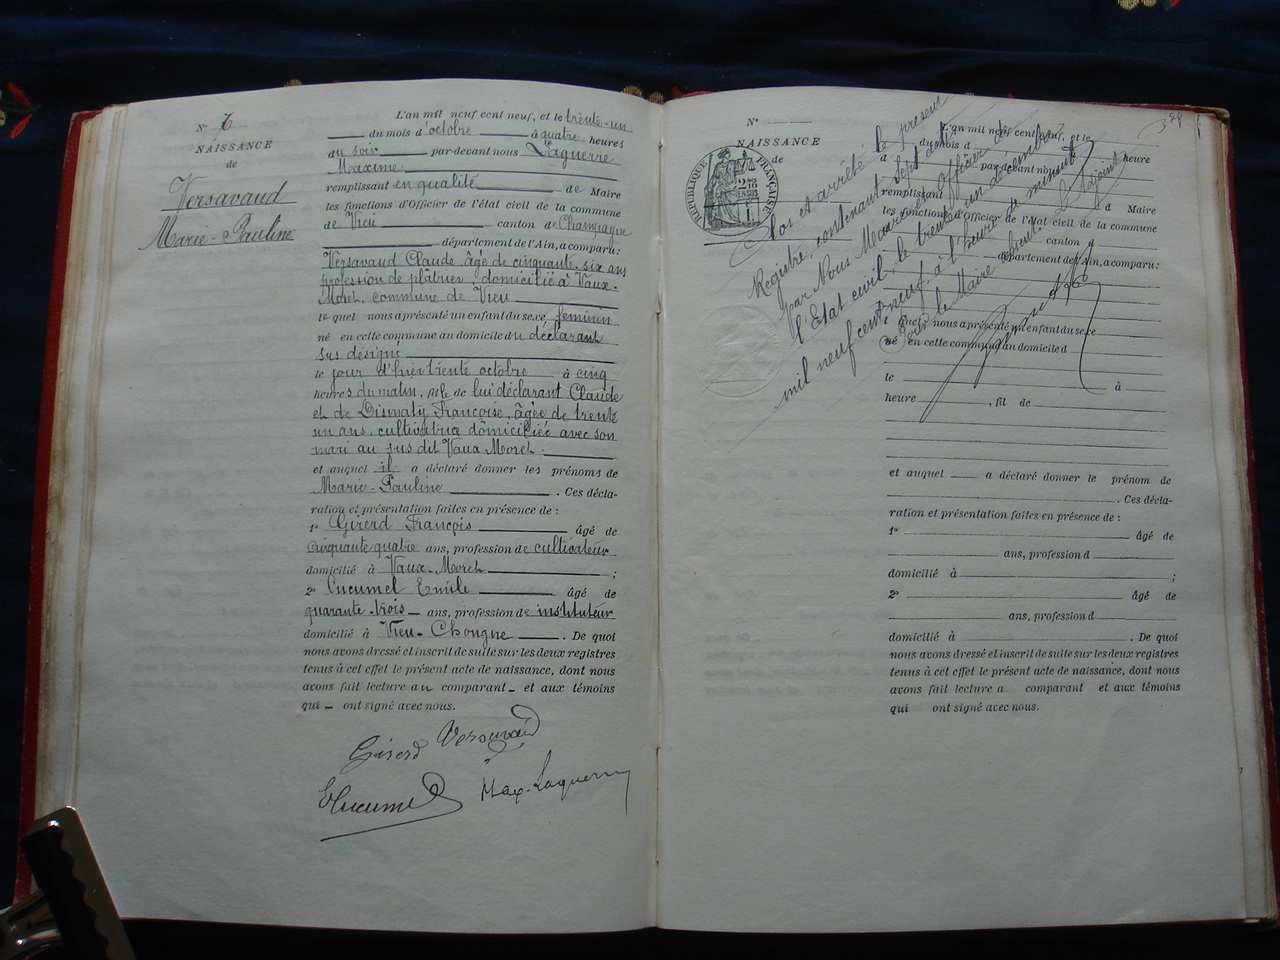 N° 7
NAISSANCE
de
Versavaud
Marie-Pauline
L'an mil neuf cent neuf, et le trente-un
du mois d'octobre à quatre heures
du soir par-devant nous Laguerre
Maxime
remplissant en qualité de Maire
les fonctions d'Officier de l'état civil de la commune
de Vieu canton de Champagne
département de l'Ain, a comparu:
Versavaud Claude âgé de cinquante-six ans
profession de plâtrier domicilié à Vaux-
Moret, commune de Vieu
lequel nous a présenté un enfant du sexe féminin
né en cette commune au domicile du déclarant
sus désigné
le jour d'hier trente octobre à cinq
heures du matin, fille de lui déclarant Claude
et de Françoise, âgée de trente
un ans, cultivatrice domiciliée avec son
mari au sus dit Vaux Moret.
et auquel il a déclaré donner les prénoms de
Marie-Pauline. Ces décla-
ration et présentation faites en présence de:
1° Girerd François âgé de
cinquante quatre ans, profession de cultivateur
domicilié à Vaux-Moret;
2° Cucumel Emile âgé de
quarante-trois ans, profession de instituteur
domicilié à Vieu-Chongne. De quoi
nous avons dressé et inscrit de suite sur les deux registres
tenus à cet effet le présent acte de naissance, dont nous
avons fait lecture au comparant et aux témoins
qui ont signé avec nous.
Girerd Versavaud
E Cucumel Max. Laguerre
N°
NAISSANCE
de
RÉPUBLIQUE FRANÇAISE
L'an mil neuf cent neuf, et le
du mois d
à heure
par-devant nous
remplissant d Maire
les fonctions d'Officier de l'état civil de la commune
d canton d
département de l'Ain, a comparu:
lequel nous a présenté un enfant du sexe
né en cette commune au domicile d
le à
heure, fil de
et auquel a déclaré donner le prénom de
. Ces décla-
ration et présentation faites en présence de:
1° âgé de
ans, profession d
domicilié à ;
2° âgé de
ans, profession d
domicilié à . De quoi
nous avons dressé et inscrit de suite sur les deux registres
tenus à cet effet le présent acte de naissance, dont nous
avons fait lecture a comparant et aux témoins
qui ont signé avec nous.
Clos et arrêté le présent
Registre, contenant sept actes
par Nous Maire Officier de
l'Etat civil, le trente un décembre
mil neuf cent neuf à l'heure de minuit.
Pour le Maire absent. L'adjoint